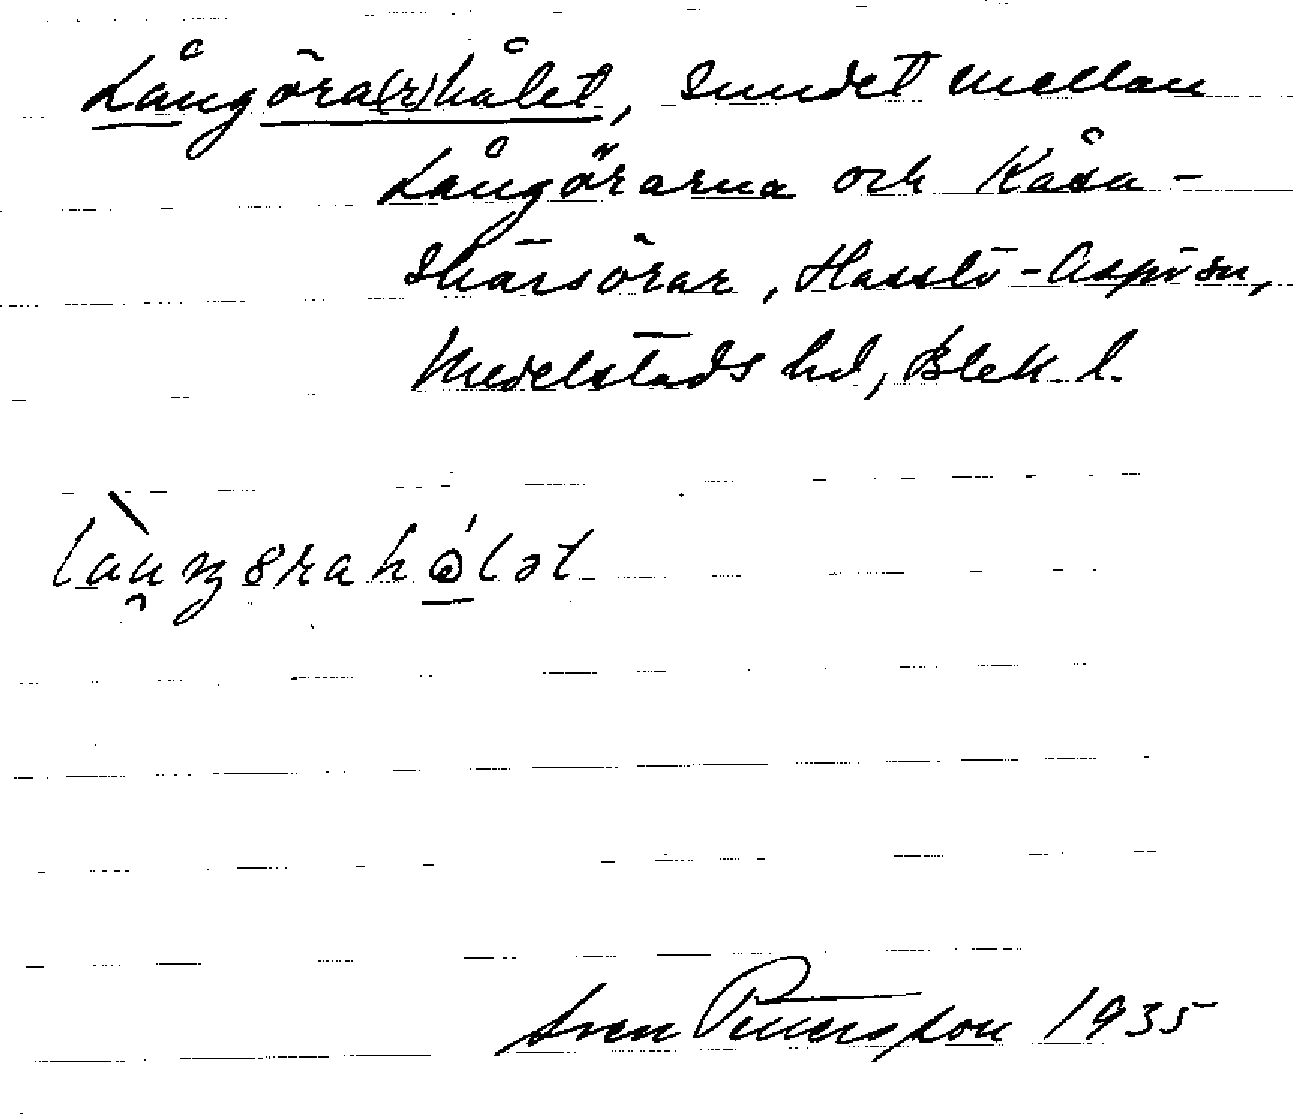 Långöra(r)hålet, sundet mellan
Långörarna och Kåsa-
skärsörar, Hasslö-Aspösn,
Medelstads hd, Blek. l.
Sven Pettersson 1935